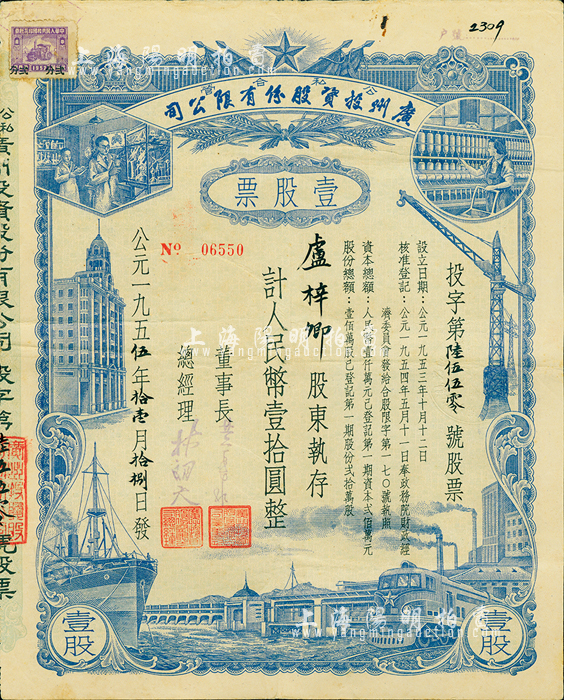 2309
公私合營
廣州投資股份有限公司
壹股票
投字第陸伍伍零號股票
設立日期：公元一九五三年十月十二日
核准登記：公元一九五四年五月十一日奉政務院財政經
濟委員會發給合股限字第一七〇號執照
資本總額：人民幣壹仟萬元已登記第一期資本弍佰萬元
股份總額：壹佰萬股已登記第一期股份弍拾萬股
盧梓卿 股東執存
計人民幣壹拾圓整
No 06550
董事長
總經理
公元一九五伍年拾壹月拾捌日發
壹股
壹股
上海陽明拍賣
yangmingauction.com
上海陽明拍賣
yangmingauction.com
上海陽明拍賣
yangmingauction.com